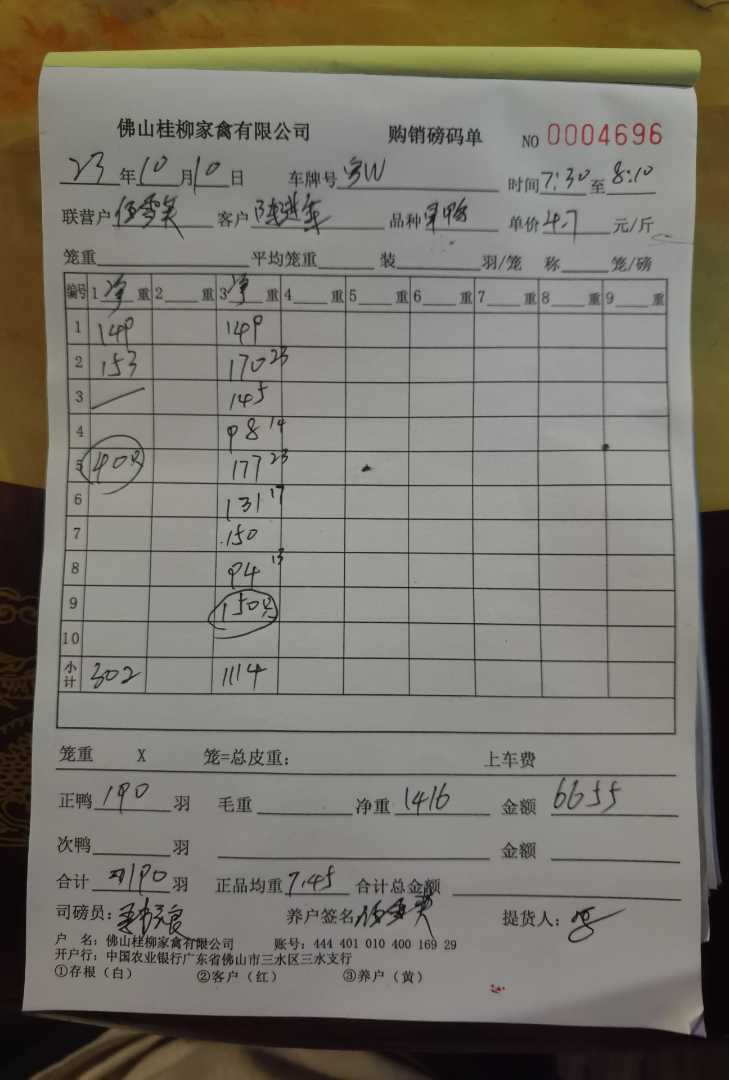 佛山桂柳家禽有限公司 购销磅码单 NO 0004696
23年10月10日 车牌号 W 时间7:30至8:10
联营户 客户 品种 单价4.7元/斤
笼重 平均笼重 装 羽/笼 称 笼/磅
编号 1净重 2 重 3净重 4 重 5 重 6 重 7 重 8 重 9 重
1 149 149
2 153 170 23
3 145
4 98 14
5 40只 177 23
6 131 17
7 150
8 94 13
9 150只
10
小计 302 1114
笼重 X 笼=总皮重: 上车费
正鸭190羽 毛重 净重1416 金额6655
次鸭 羽 金额
合计190羽 正品均重7.45 合计总金额
司磅员: 养户签名 提货人:
户 名: 佛山桂柳家禽有限公司 账号: 444 401 010 400 169 29
开户行: 中国农业银行广东省佛山市三水区三水支行
①存根（白） ②客户（红） ③养户（黄）